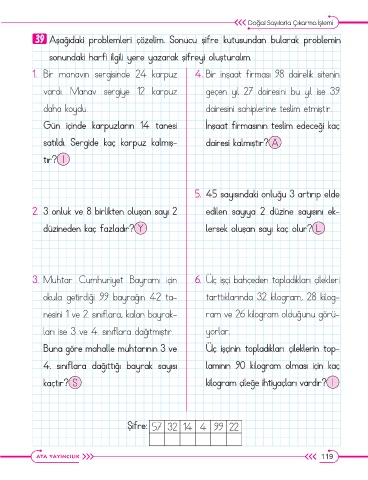 Doğal Sayılarla Çıkarma İşlemi
39 Aşağıdaki problemleri çözelim. Sonucu şifre kutusundan bularak problemin
sonundaki harfi ilgili yere yazarak şifreyi oluşturalım.
1. Bir manavın sergisinde 24 karpuz
vardı. Manav sergiye 12 karpuz
daha koydu.
Gün içinde karpuzların 14 tanesi
satıldı. Sergide kaç karpuz kalmış-
tır? I
2. 3 onluk ve 8 birlikten oluşan sayı 2
düzineden kaç fazladır? Y
3. Muhtar Cumhuriyet Bayramı için
okula getirdiği 99 bayrağın 42 ta-
nesini 1 ve 2. sınıflara, kalan bayrak-
ları ise 3 ve 4. sınıflara dağıtmıştır.
Buna göre mahalle muhtarının 3 ve
4. sınıflara dağıttığı bayrak sayısı
kaçtır? S
4. Bir inşaat firması 98 dairelik sitenin
geçen yıl 27 dairesini bu yıl ise 39
dairesini sahiplerine teslim etmiştir.
İnşaat firmasının teslim edeceği kaç
dairesi kalmıştır? A
5. 45 sayısındaki onluğu 3 artırıp elde
edilen sayıya 2 düzine sayısını ek-
lersek oluşan sayı kaç olur? L
6. Üç işçi bahçeden topladıkları çilekleri
tarttıklarında 32 kilogram, 28 kilog-
ram ve 26 kilogram olduğunu görü-
yorlar.
Üç işçinin topladıkları çileklerin top-
lamının 90 kilogram olması için kaç
kilogram çileğe ihtiyaçları vardır? İ
Şifre: 57 32 14 4 99 22
ATA YAYINCILIK
119